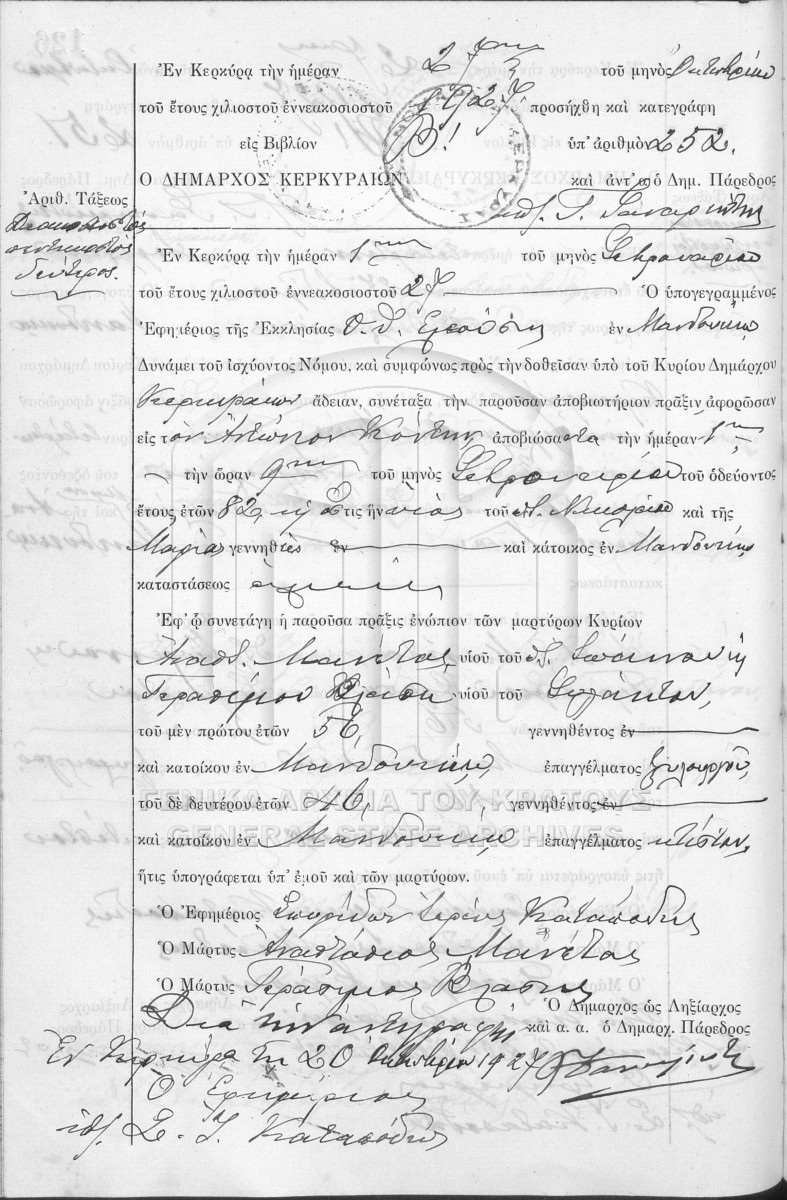 Ἐν Κερκύρᾳ τὴν ἡμέραν 2 τοῦ μηνὸς Ὀκτωβρίου
τοῦ ἔτους χιλιοστοῦ ἐννεακοσιοστοῦ 1927 προσήχθη καὶ κατεγράφη
εἰς Βιβλίον Β! ὑπ' ἀριθμὸν 252.
Ο ΔΗΜΑΡΧΟΣ ΚΕΡΚΥΡΑΙΩΝ καὶ ἀντ' αὐτοῦ ὁ Δημ. Πάρεδρος
Ἀριθ. Τάξεως
Διακοσιοστὸς
πεντηκοστὸς
δεύτερος.
Ἐν Κερκύρᾳ τὴν ἡμέραν 1ην τοῦ μηνὸς Σεπτεμβρίου
τοῦ ἔτους χιλιοστοῦ ἐννεακοσιοστοῦ 27 Ὁ ὑπογεγραμμένος
Ἐφημέριος τῆς Ἐκκλησίας Ἐλεούσης ἐν Μανδουκίῳ
Δυνάμει τοῦ ἰσχύοντος Νόμου, καὶ συμφώνως πρὸς τὴν δοθεῖσαν ὑπὸ τοῦ Κυρίου Δημάρχου
Κερκυραίων ἄδειαν, συνέταξα τὴν παροῦσαν ἀποβιωτήριον πρᾶξιν ἀφορῶσαν
εἰς τὸν Ἀντώνιον Κόντην ἀποβιώσαντα τὴν ἡμέραν 1ην
τὴν ὥραν 9ην τοῦ μηνὸς τοῦ ὁδεύοντος
ἔτους, ἐτῶν 82, ὅστις ἦν υἱὸς τοῦ Νικολάου καὶ τῆς
Μαρίας γεννηθεὶς ἐν καὶ κάτοικος ἐν Μανδουκίῳ
καταστάσεως
Ἐφ' ᾧ συνετάγη ἡ παροῦσα πρᾶξις ἐνώπιον τῶν μαρτύρων Κυρίων
Ἀναστ. Μανέτας υἱοῦ τοῦ Ἰωάννου ἢ
Γερασίμου Βλάση υἱοῦ τοῦ
τοῦ μὲν πρώτου ἐτῶν 56, γεννηθέντος ἐν
καὶ κατοίκου ἐν Μανδουκίῳ, ἐπαγγέλματος ξυλουργοῦ,
τοῦ δὲ δευτέρου ἐτῶν 46, γεννηθέντος ἐν
καὶ κατοίκου ἐν Μανδουκίῳ ἐπαγγέλματος κτίστου,
ἥτις ὑπογράφεται ὑπ' ἐμοῦ καὶ τῶν μαρτύρων.
Ὁ Ἐφημέριος Σπυρίδων Ἱερεὺς Καταπόδης
Ὁ Μάρτυς Ἀναστάσιος Μανέτας
Ὁ Μάρτυς Γεράσιμος Βλάσης
Ὁ Δήμαρχος ὡς Ληξίαρχος
Διὰ τὴν ἀντιγραφήν καὶ ἀ. ἀ. ὁ Δημαρχ. Πάρεδρος
Ἐν Κερκύρᾳ τῇ 20 Ὀκτωβρίου 1927
Ὁ Ἐφημέριος
ὑπ. Σ. Ἱ. Καταπόδης
ΓΕΝΙΚΑ ΑΡΧΕΙΑ ΤΟΥ ΚΡΑΤΟΥΣ
GENERAL STATE ARCHIVES